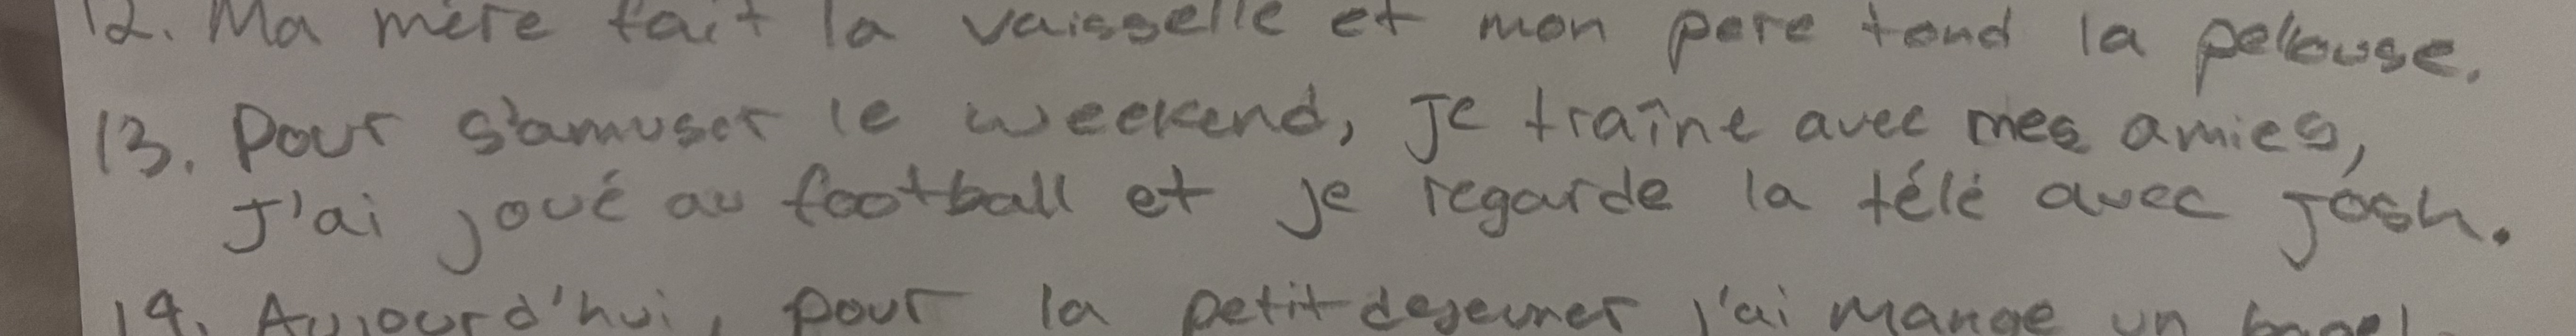 12. Ma mère fait la vaisselle et mon pere tond la pelouse.
13. Pour s'amuser le weekend, je traîne avec mes amies,
J'ai joué au football et je regarde la télé avec Josh.
14. Aujourd'hui, pour la petit dejeuner j'ai mange un bagel